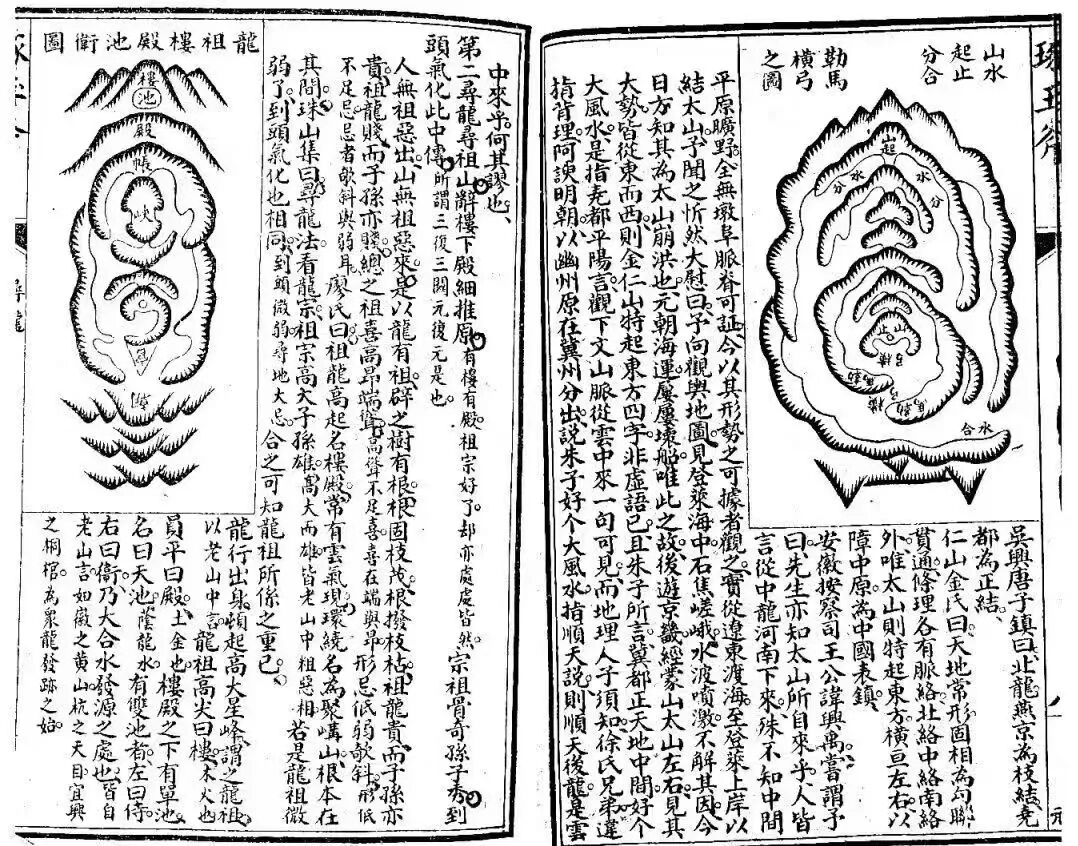 琢玉斧
山水
起止
分合
勒馬
橫弓
之圖
山起
水分
水分
山止
弓橫
水合
吳興唐子鎮曰北龍燕京為枝結堯
都為正結
仁山金氏曰天地常形固相為勾聯
貫通條理各有脈絡北絡中絡南絡
外唯太山則特起東方橫亘左右以
障中原為中國表鎮
安徽按察司王公諱興禹嘗謂予
曰先生亦知太山所自來乎人皆
言從中龍河南下來殊不知中間
平原曠野全無墩阜脈脊可証今以其形勢之可據者觀之實從遼東渡海至登萊上岸以
結太山予聞之忻然大慰曰予向觀輿地圖見登萊海中石焦嵯峨水波噴激不解其因今
日方知其為太山崩洪也元朝海運屢屢壞船唯此之故後遊京畿經蒙山太山左右見其
大勢皆從東而西則金仁山特起東方四字非虛語已且朱子所言冀都正天地中間好个
大風水是指堯都平陽言觀下文山脈從雲中來一句可見而地理人子須知徐氏兄弟違
背背理阿諛明朝以幽州原在冀州分出說朱子好个大風水指順天說則順天後龍是雲
中來乎何其謬也
第二尋龍尋祖山辭樓下殿細推原有樓有殿祖宗好了却亦處處皆然宗祖骨奇孫子秀到
頭氣化此中傳所謂三復三關元復元是也
人無祖惡出山無祖惡來是以龍有祖辟之樹有根根固枝茂根撥枝枯祖龍貴而子孫亦
貴祖龍賤而子孫亦賤總之祖喜高昂端聳高聳不足喜喜在端與昂形忌低弱欹斜形低
不足忌忌者欹斜與弱耳廖氏曰祖龍高起名樓殿常有雲氣現環繞名為聚講山根本在
其間珠山集曰尋龍法看龍宗祖宗高大子孫雄高大而雄皆老山中粗惡相若是龍祖微
弱了到頭氣化也相同到頭微弱尋地大忌合之可知龍祖所係之重已
龍祖樓殿池衛圖
樓
池
殿
帳
峽
龍行出身頓起高大星峰謂之龍祖
以老山中言龍祖高尖曰樓木火也
員平曰殿土金也樓殿之下有單池
名曰天池蔭龍水有雙池者左曰侍
右曰衛乃大合水發源之處也皆自
老山言如徽之黃山杭之天目宜興
之桐棺為眾龍發跡之始